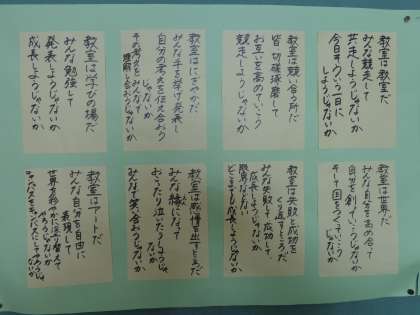 教室は教室だ
みんな競走して
共走しようじゃないか
今日も
しようじゃないか
教室は競い合う所だ
皆切磋琢磨して
お互いを高めていこう
競走しようじゃないか
教室はにぎやかだ
みんな手を挙げ発表し
自分の考えを伝え合おう
じゃないか
その考えをみんなで
理解し合おうじゃないか
教室は学びの場だ
みんな勉強して
発表しようじゃないか
成長しようじゃないか
教室は世界だ
みんな自分を高め合って
自分を創っていこう
じゃないか
そして国をつくっていこう
じゃないか
教室は失敗と成功を
くり返すところだ
みんな失敗して成功して
成長しようじゃないか
限界なしに
どこまでも成長しようじゃないか
教室は感情を出すところだ
みんな緑になって
おこったり泣いたりしようじゃ
ないか
みんなで笑い合おうじゃないか
教室はアートだ
みんな自分を自由に
表現して
世界を鮮やかに塗り替えて
やろうじゃないか